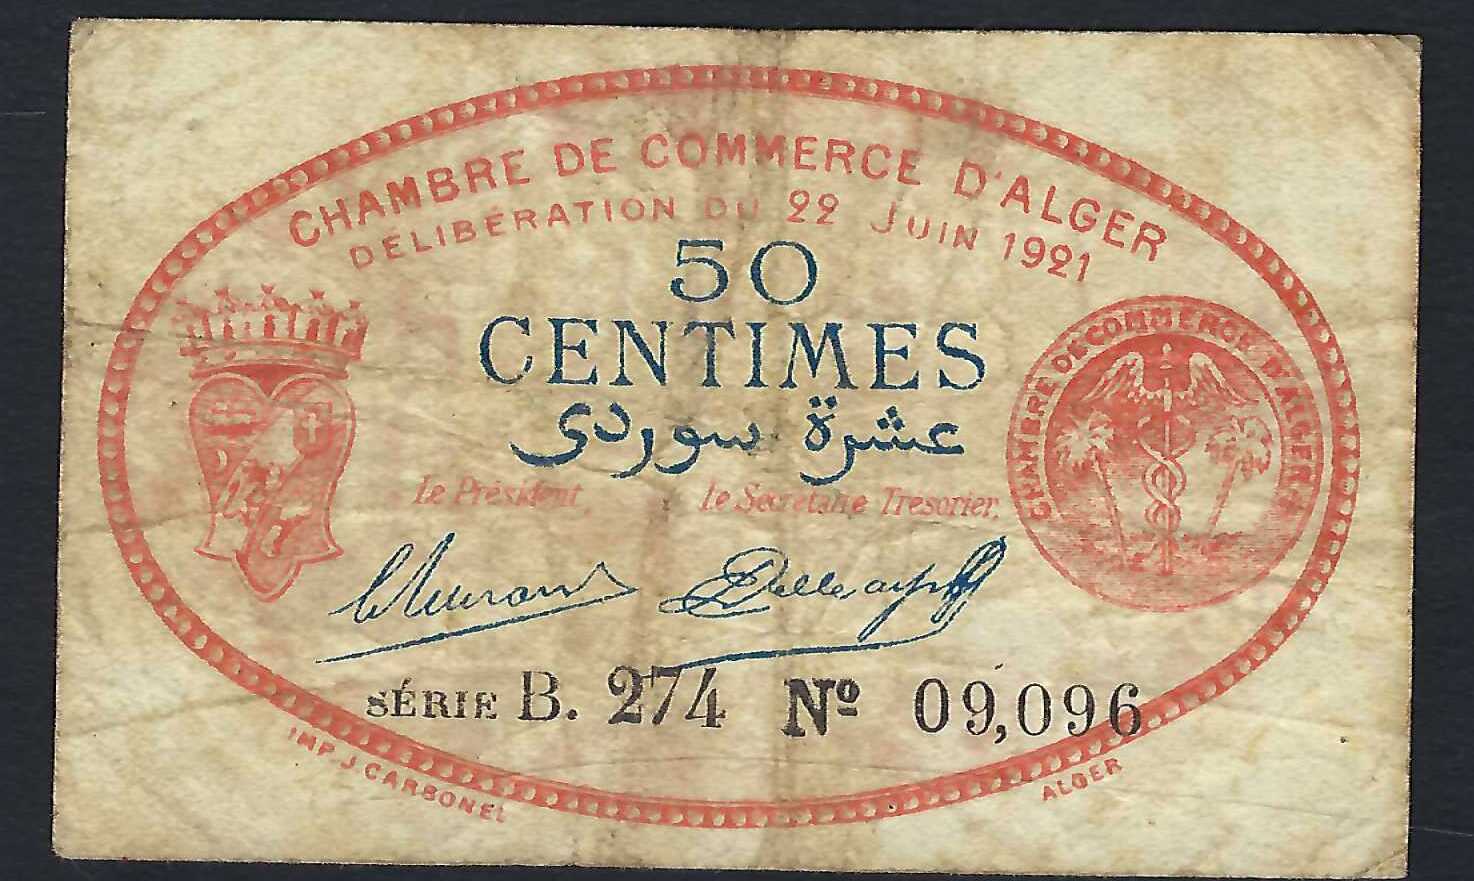 CHAMBRE DE COMMERCE D'ALGER
DÉLIBÉRATION DU 22 JUIN 1921
50
CENTIMES
عشرة سوردى
Le Président,
Le Secrétaire Trésorier,
CHAMBRE DE COMMERCE D'ALGER
SÉRIE B. 274 Nº 09,096
IMP. J. CARBONEL
ALGER